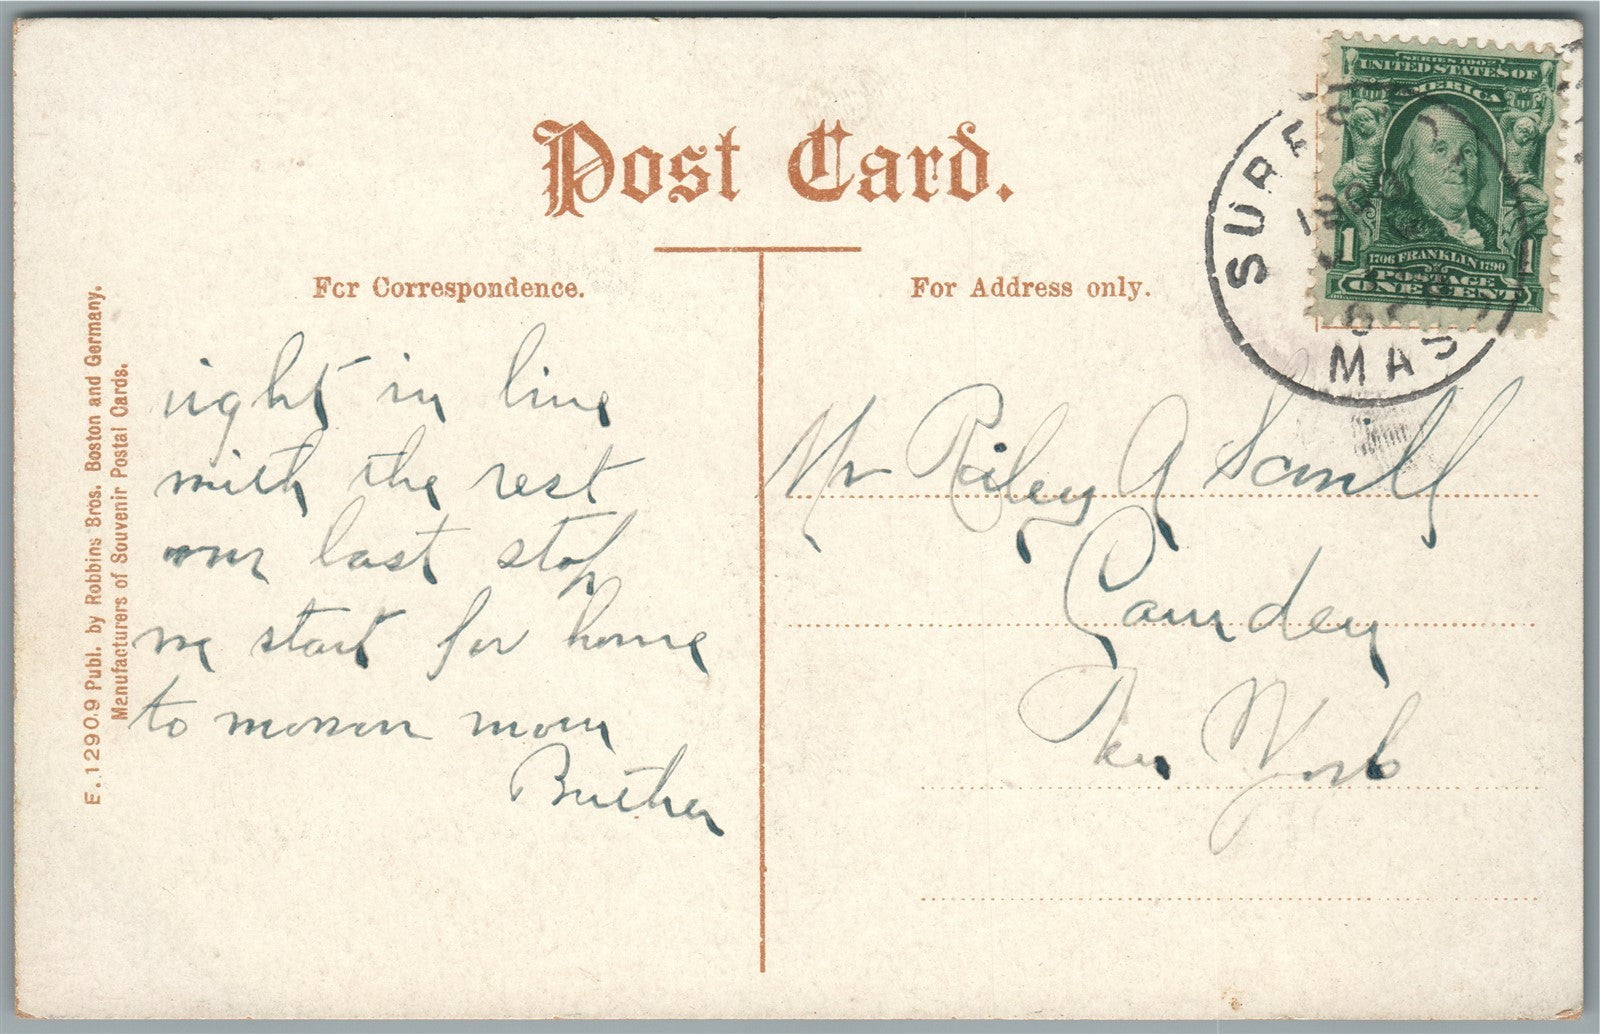 Post Card.
For Correspondence.
For Address only.
E. 12909 Publ. by Robbins Bros. Boston and Germany.
Manufacturers of Souvenir Postal Cards.
right in line
with the rest
our last stop
we start for home
to morrow morn
Mr Riley A
Camden
New York
SURFSI
1908
MAS
SERIES 1902
UNITED STATES OF
AMERICA
1 1
1706 FRANKLIN 1790
POSTAGE
ONE CENT